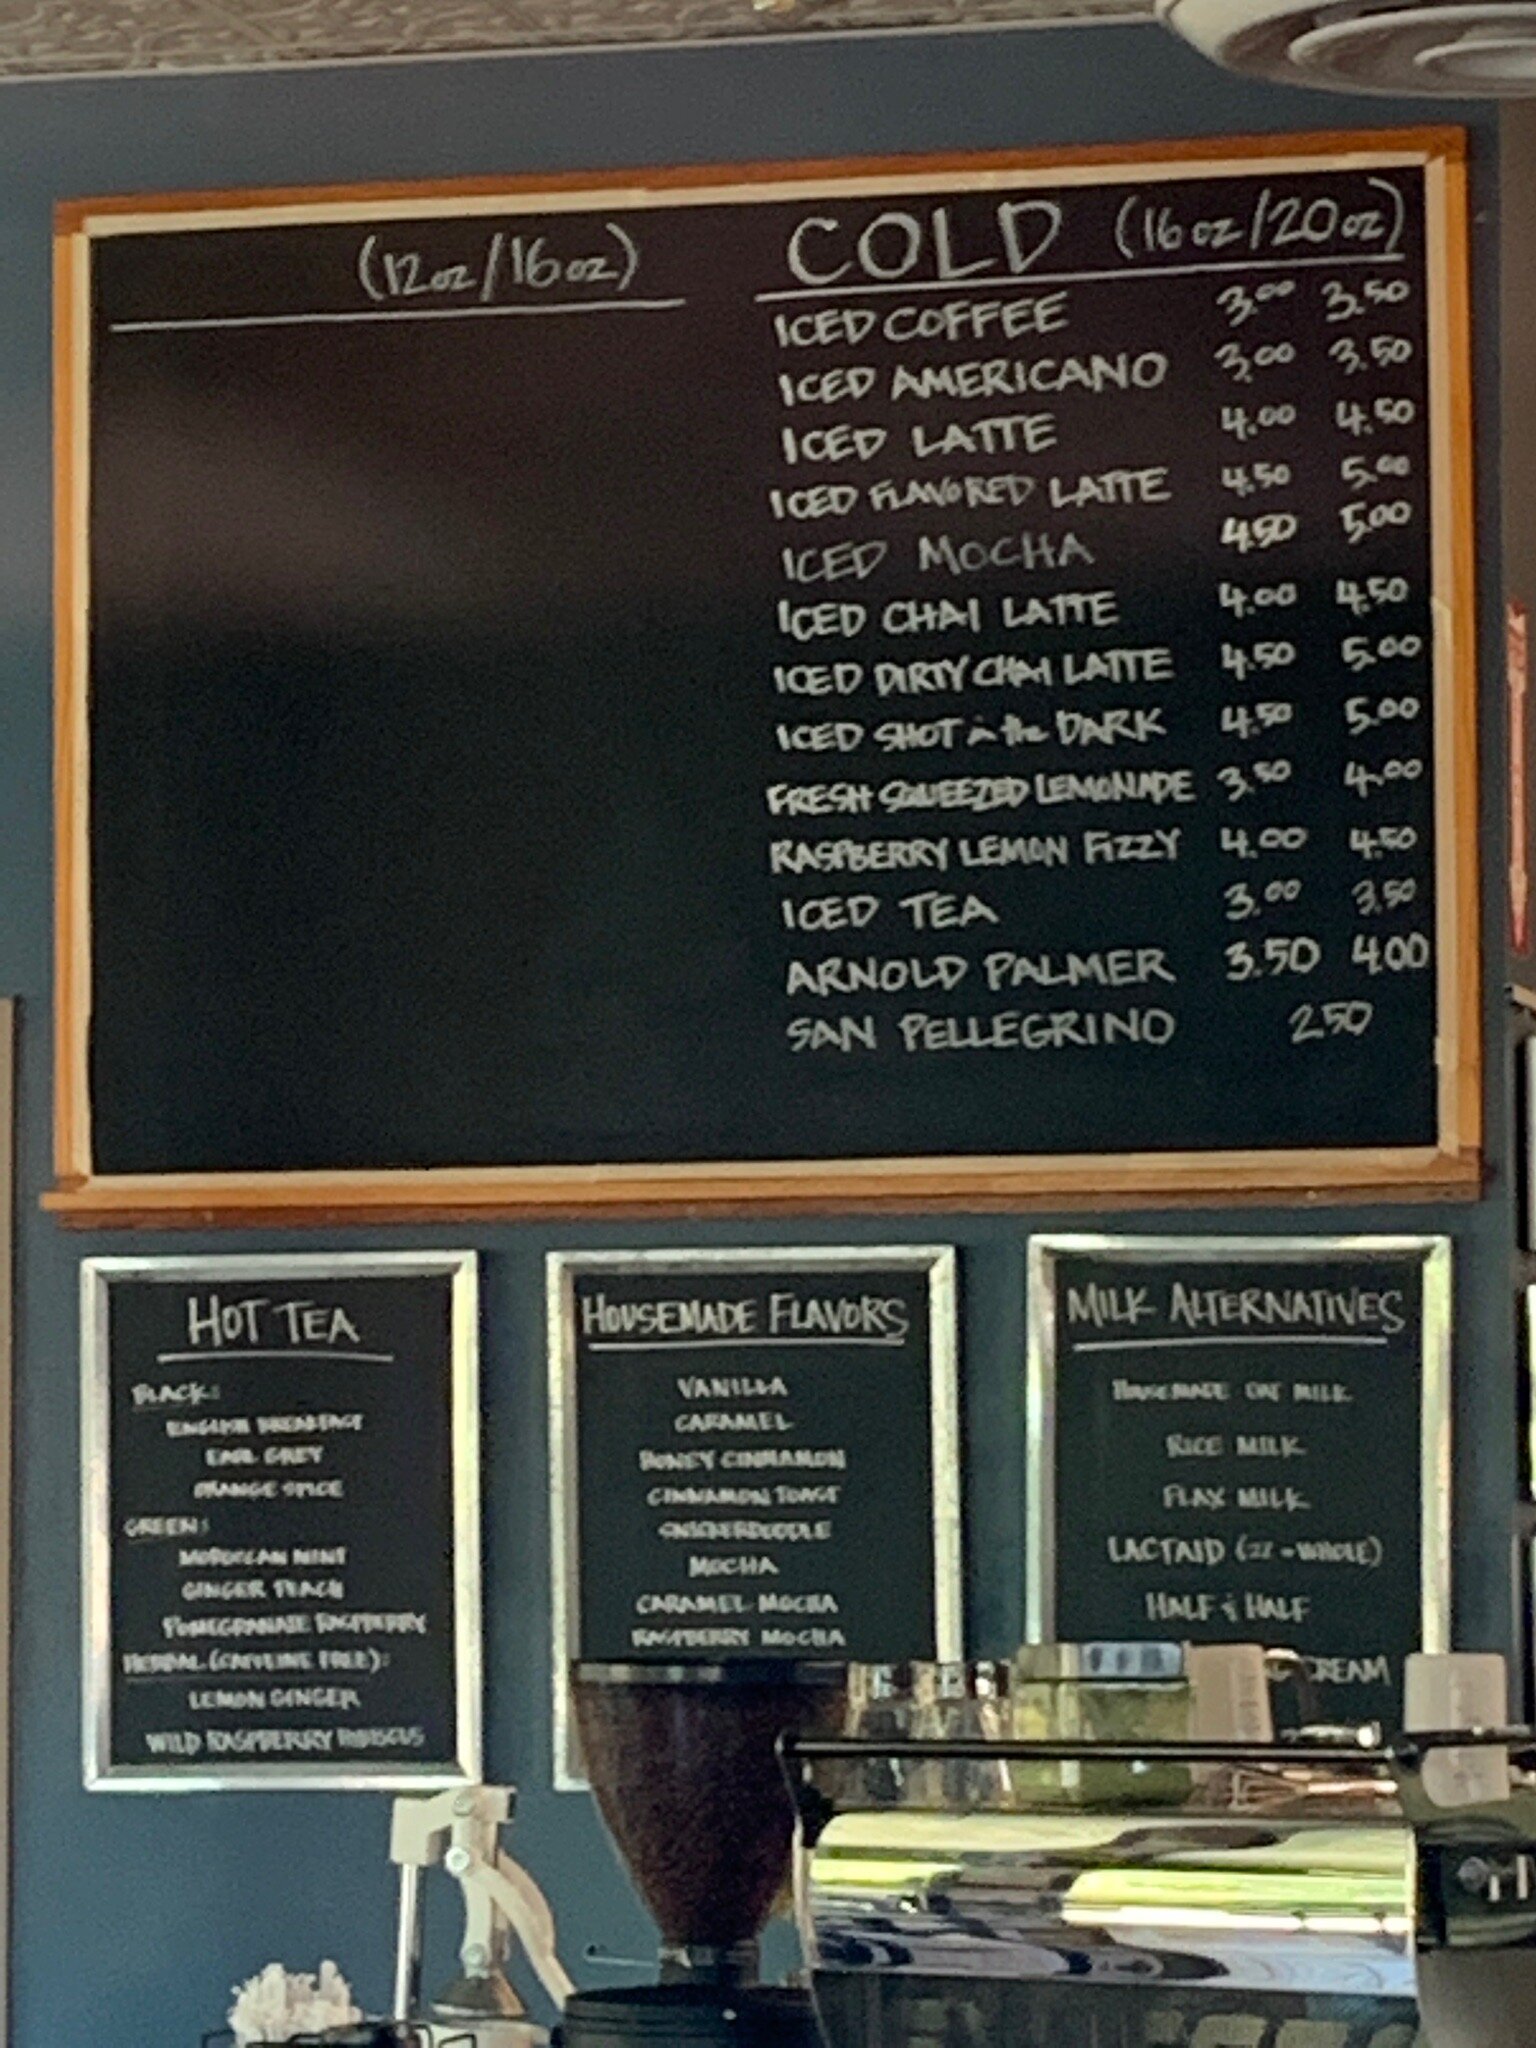 (12oz/16oz)
COLD (16oz/20oz)
ICED COFFEE 3.00 3.50
ICED AMERICANO 3.00 3.50
ICED LATTE 4.00 4.50
ICED FLAVORED LATTE 4.50 5.00
ICED MOCHA 4.50 5.00
ICED CHAI LATTE 4.00 4.50
ICED DIRTY CHAI LATTE 4.50 5.00
ICED SHOT in the DARK 4.50 5.00
FRESH SQUEEZED LEMONADE 3.50 4.00
RASPBERRY LEMON FIZZY 4.00 4.50
ICED TEA 3.00 3.50
ARNOLD PALMER 3.50 4.00
SAN PELLEGRINO 2.50
HOT TEA
BLACK:
ENGLISH BREAKFAST
EARL GREY
ORANGE SPICE
GREEN:
MOROCCAN MINT
GINGER PEACH
POMEGRANATE RASPBERRY
HERBAL (CAFFEINE FREE):
LEMON GINGER
WILD RASPBERRY HIBISCUS
HOUSEMADE FLAVORS
VANILLA
CARAMEL
HONEY CINNAMON
CINNAMON TOAST
SNICKERDOODLE
MOCHA
CARAMEL MOCHA
RASPBERRY MOCHA
MILK ALTERNATIVES
HOUSEMADE OAT MILK
RICE MILK
FLAX MILK
LACTAID (2% - WHOLE)
HALF & HALF
CREAM